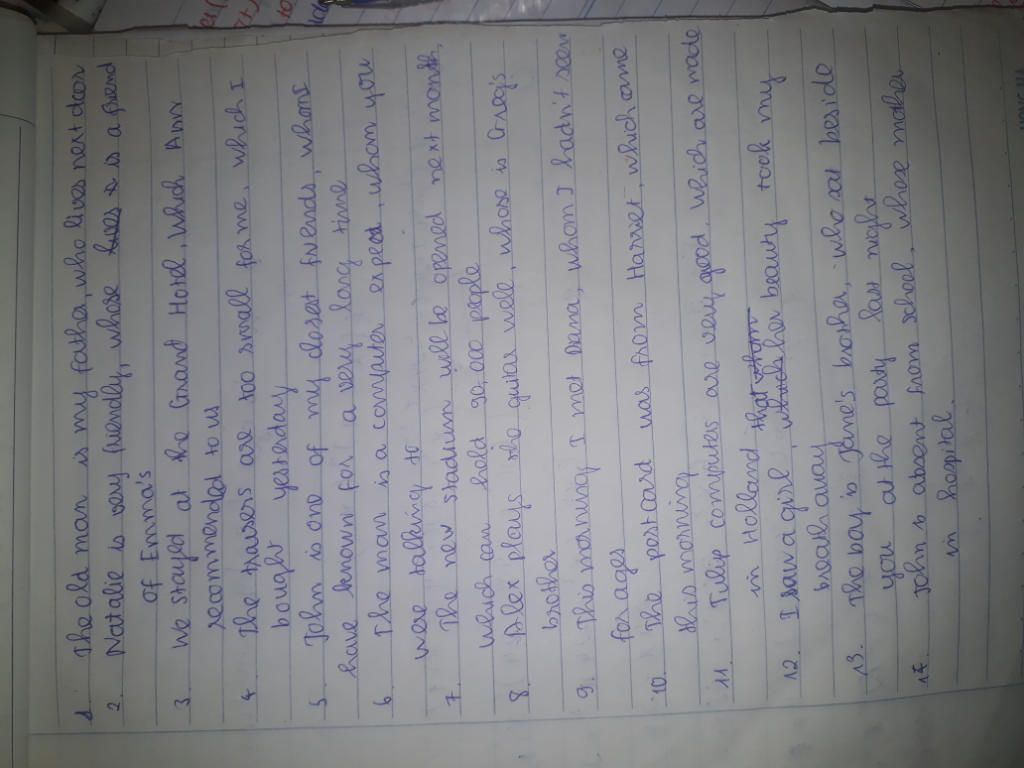 1 The old man is my father, who lives next door
2. Natalie is very friendly, whose is a friend
of Emma's
3 We stayed at the Grant Hotel, which Ann
recommended to us
4 The trausers are too small for me, which I
bought yesterday
5 John is one of my closest friends, whom I
have known for a very long time
6 The man is a computer expert, whom you
were talking to
7. The new stadium will be opened next month,
which can hold 90,000 people
8. Alex plays the guitar well, whose is Greg's
brother
9. This morning I met Dana, whom I hadn't seen
for ages
10. The postcard was from Harriet, which came
this morning
11. Tulip computes are very good, which are made
in Holland that whom
12. I saw a girl, which her beauty took my
breath away
13. The boy is Jane's brother, who sat beside
you at the party last night
14. John is absent from school, where mother
in hospital.